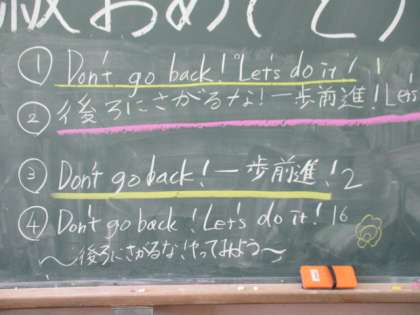 級おめでとう
① Don't go back! Let's do it! 1
② 後ろにさがるな!一歩前進!Let's
③ Don't go back!一歩前進!2
④ Don't go back! Let's do it! 16
〜後ろにさがるな!やってみよう〜